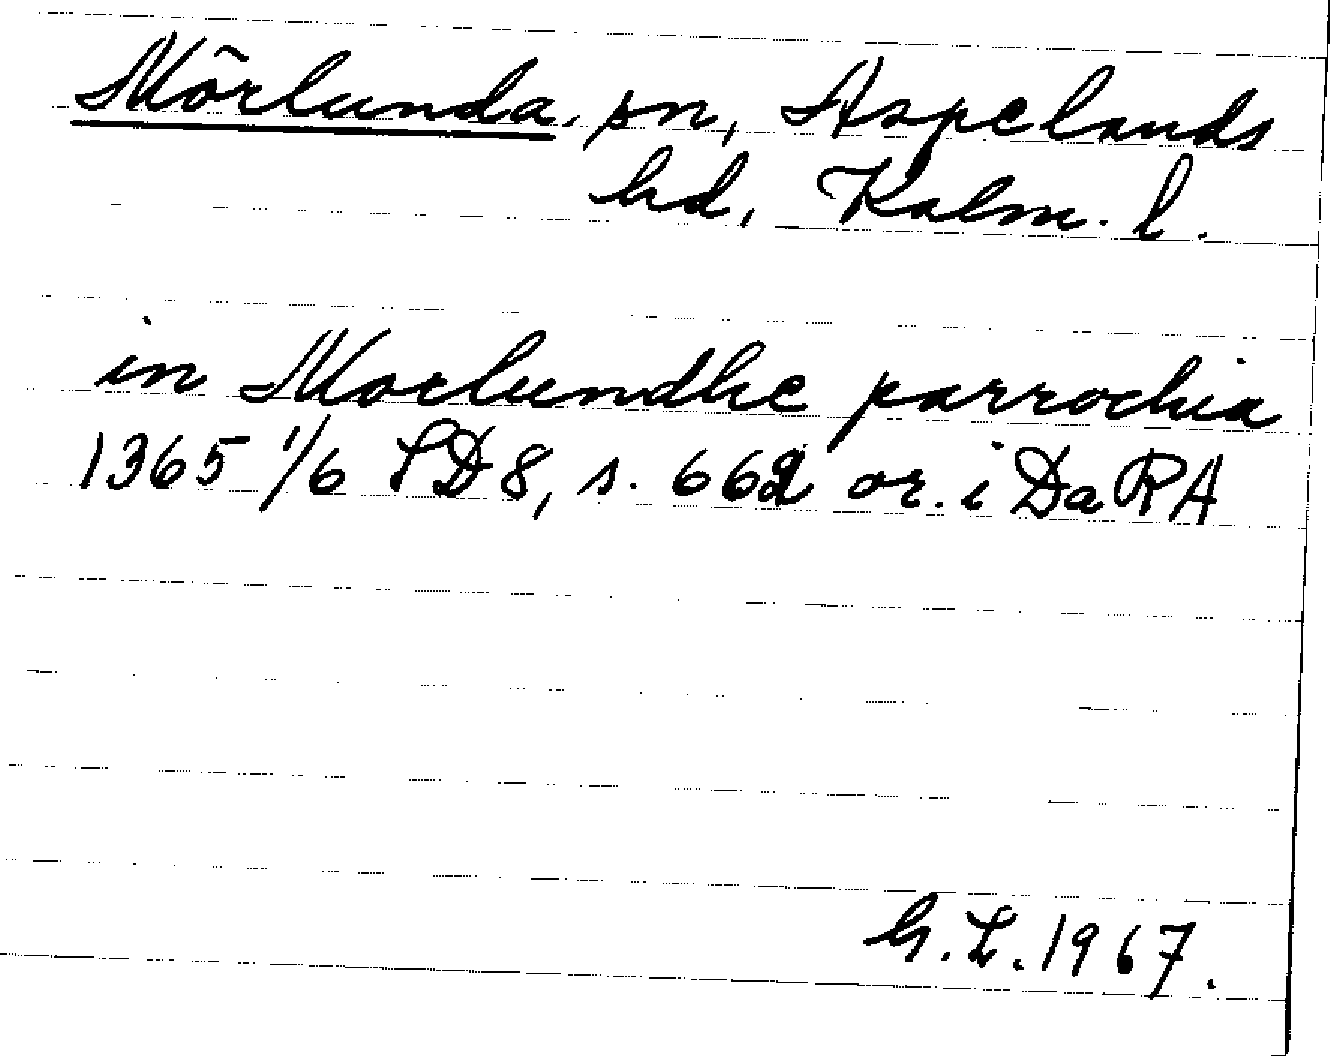 Mörlunda, sn, Aspelands
hd, Kalm. l.
in Morlundhe parrochia
1365 1/6 SD 8, s. 662 or. i DaRA
G.L. 1967.